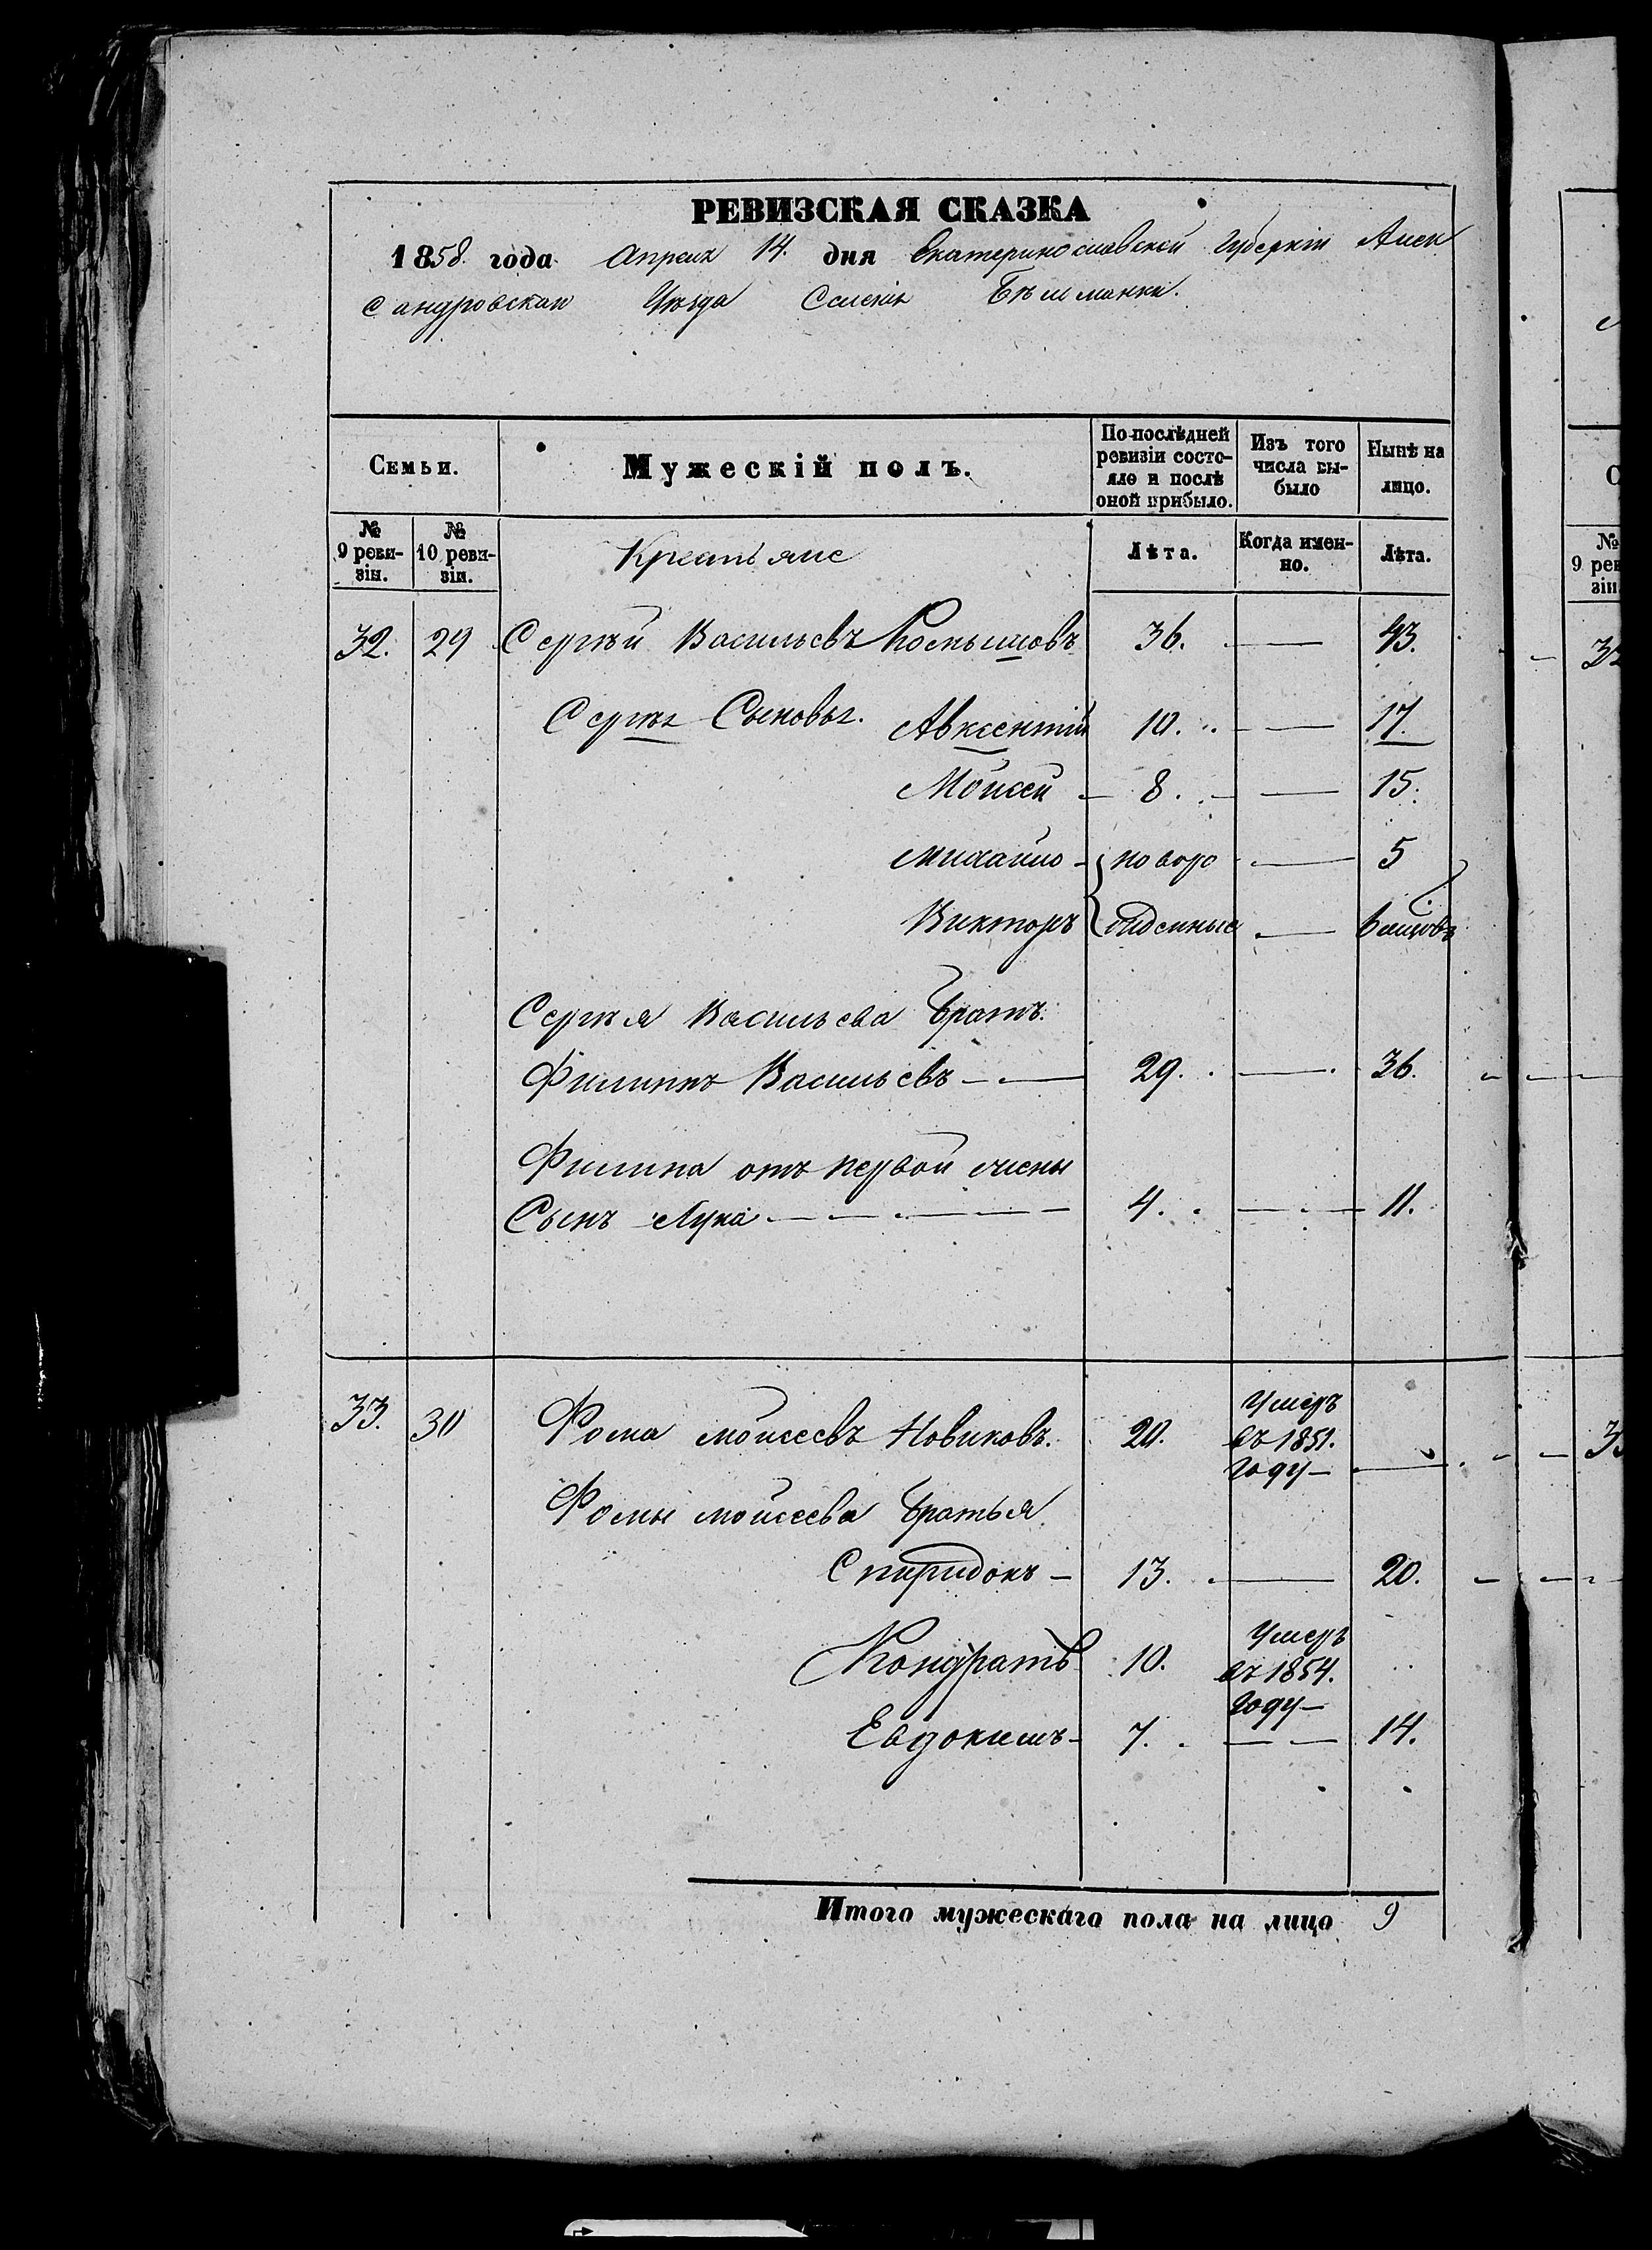 РЕВИЗСКАЯ СКАЗКА
1858. года Апреля 14. дня Екатеринославской Губерніи Алек
сандровскаго Уѣзда Селенія Бѣлманки.
Семьи.
Мужескій полъ.
По послѣдней ревизіи состо-
яло и послѣ
оной прибыло.
Изъ того
числа вы-
было
Нынѣ на
лицо.
№
9 реви-
зіи.
№
10 реви-
зіи.
Крестьяне
Лѣта.
Когда имен-
но.
Лѣта.
32. 29 Сергѣй Васильевъ 36. — 43.
Сергѣя Сыновья. Авксентій 10. — 17.
Мойсей — 8. — — 15.
Михайло — новоро — 5
Викторъ жденные — 6 мцовъ
Сергѣя Васильева братъ.
Филиппъ Васильевъ — — 29. — 36.
Филипа отъ первой жены
Сынъ Лука — — — — — 4. — — 11.
33. 30 Фома Мойсеевъ Новиковъ. 20. Умеръ
въ 1851.
году —
Фомы Мойсеева братья
Спиридонъ — 13. — 20.
Кондратъ 10. Умеръ
въ 1854.
году —
Евдокимъ — 7. — — 14.
Итого мужескаго пола на лицо 9
№
9 рев
зіи.